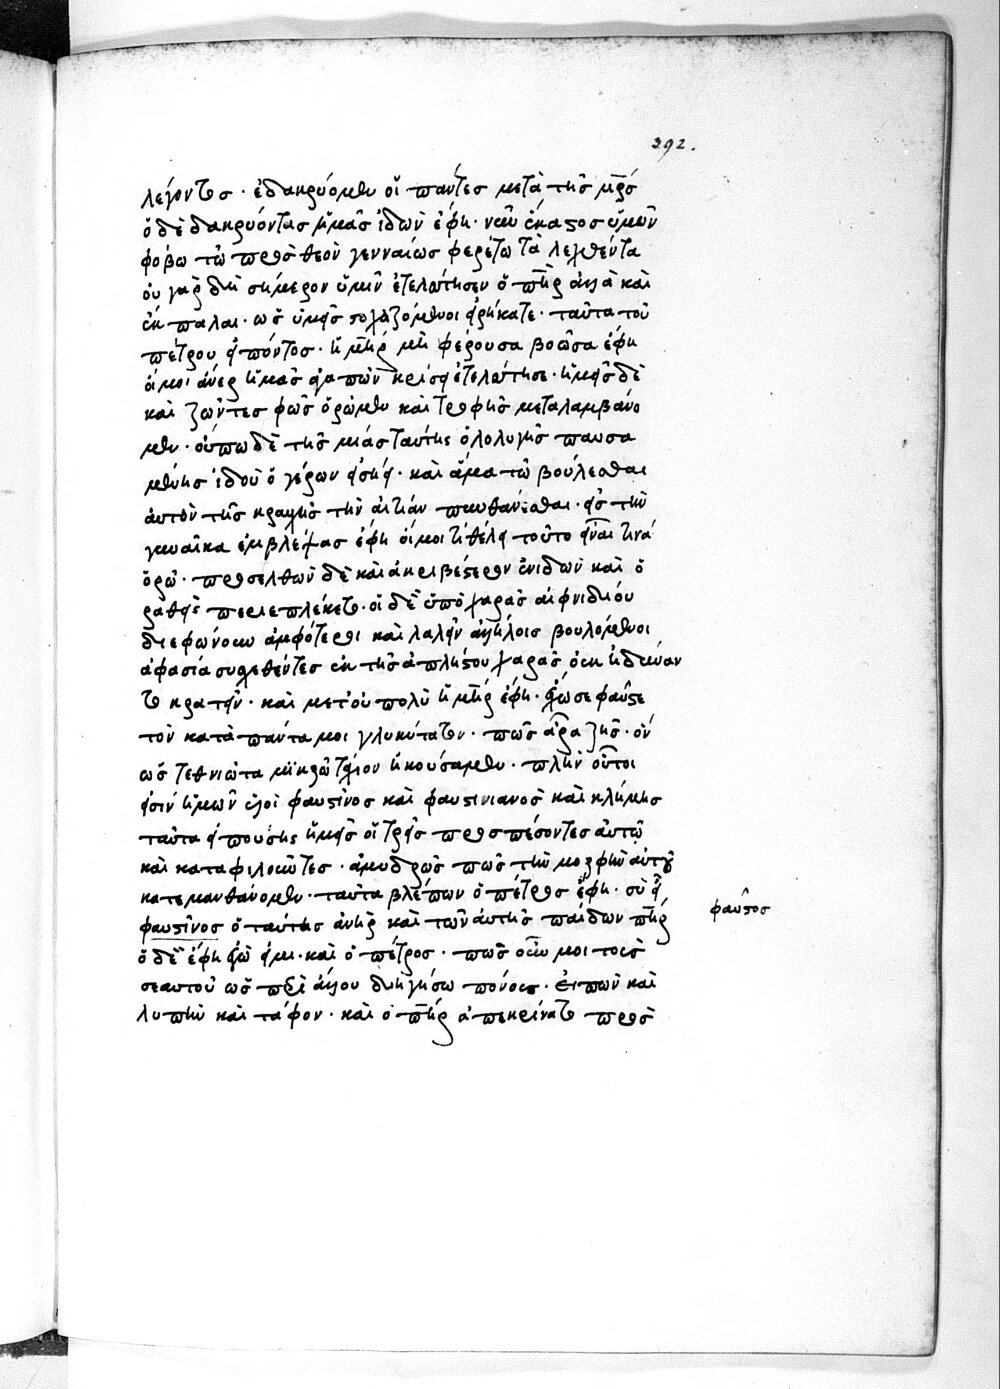 292.
λέγοντος · ἐδακρύομεν οἱ πάντες μετὰ τῆς μρ̅ς
ὁ δὲ δακρύοντας ἡμᾶς ἰδὼν ἔφη · νῦν ἕκαστος ὑμῶν
φόβω τῶ πρὸς θεὸν γενναίως φερέτω τὰ λεχθέντα
οὐ γὰρ δὴ σήμερον ὑμῖν ἐτελεύτησεν ὁ πη̅ρ ἀλλὰ καὶ
ἐκ πάλαι · ὡς ὑμεῖς στοχαζόμενοι εἰρήκατε · ταῦτα τοῦ
πέτρου εἰπόντος · ἡ μη̅ρ μὴ φέρουσα βοῶσα ἔφη
οἴμοι ἄνερ ἡμᾶς ἀγαπῶν κρίσει ἐτελεύτησε · ἡμεῖς δὲ
καὶ ζῶντες φῶς ὁρῶμεν καὶ τροφῆς μεταλαμβάνο
μεν · οὔπω δὲ τῆς μιᾶς ταύτης ὀλολυγῆς παυσα
μένης ἰδοὺ ὁ γέρων εἰσήει · καὶ ἅμα τῶ βούλεσθαι
αὐτὸν τῆς κραυγῆς τὴν αἰτίαν πυνθάνεσθαι · εἰς τὴν
γυναῖκα ἐμβλέψας ἔφη οἴμοι τί θέλει τοῦτο εἶναι τίνα
ὁρῶ · προσελθὼν δὲ καὶ ἀκριβέστερον ἐνιδὼν καὶ ὁ
ραθεὶς περιεπλέκετο · οἱ δὲ ὑπὸ χαρᾶς αἰφνιδίου
διεφώνουν ἀμφότεροι καὶ λαλεῖν ἀλλήλοις βουλόμενοι
ἀφασία συσχεθέντες ἐκ τῆς ἀπλήστου χαρᾶς οὐκ ἠδύναν
το κρατεῖν · καὶ μετ' οὐ πολὺ ἡ μη̅ρ ἔφη · ἔχω σε φαῦστε
τὸν κατὰ πάντα μοι γλυκύτατον · πῶς ἄρα ζῆς · ὃν
ὡς τεθνεῶτα μικρῶ πρότερον ἠκούσαμεν · πλὴν οὗτοι
εἰσὶν ἡμῶν υἱοὶ φαυστῖνος καὶ φαυστινιανὸς καὶ κλήμης
ταῦτα εἰπούσης ἡμεῖς οἱ τρεῖς προσπέσοντες αὐτῶ
καὶ καταφιλοῦντες · ἀμυδρῶς πως τὴν μορφὴν αὐτοῦ
κατεμανθάνομεν · ταῦτα βλέπων ὁ πέτρος ἔφη · σὺ εἶ
φαυστῖνος ὁ ταύτης ἀνὴρ καὶ τῶν αὐτῆς παίδων πη̅ρ
φαῦστος
ὁ δὲ ἔφη ἐγώ εἰμι · καὶ ὁ πέτρος · πῶς οὖν μοι τοὺς
σεαυτοῦ ὡς περὶ ἄλλου διηγήσω πόνους · εἰπὼν καὶ
λύπην καὶ τάφον · καὶ ὁ πη̅ρ ἀπεκρίνατο πρὸς